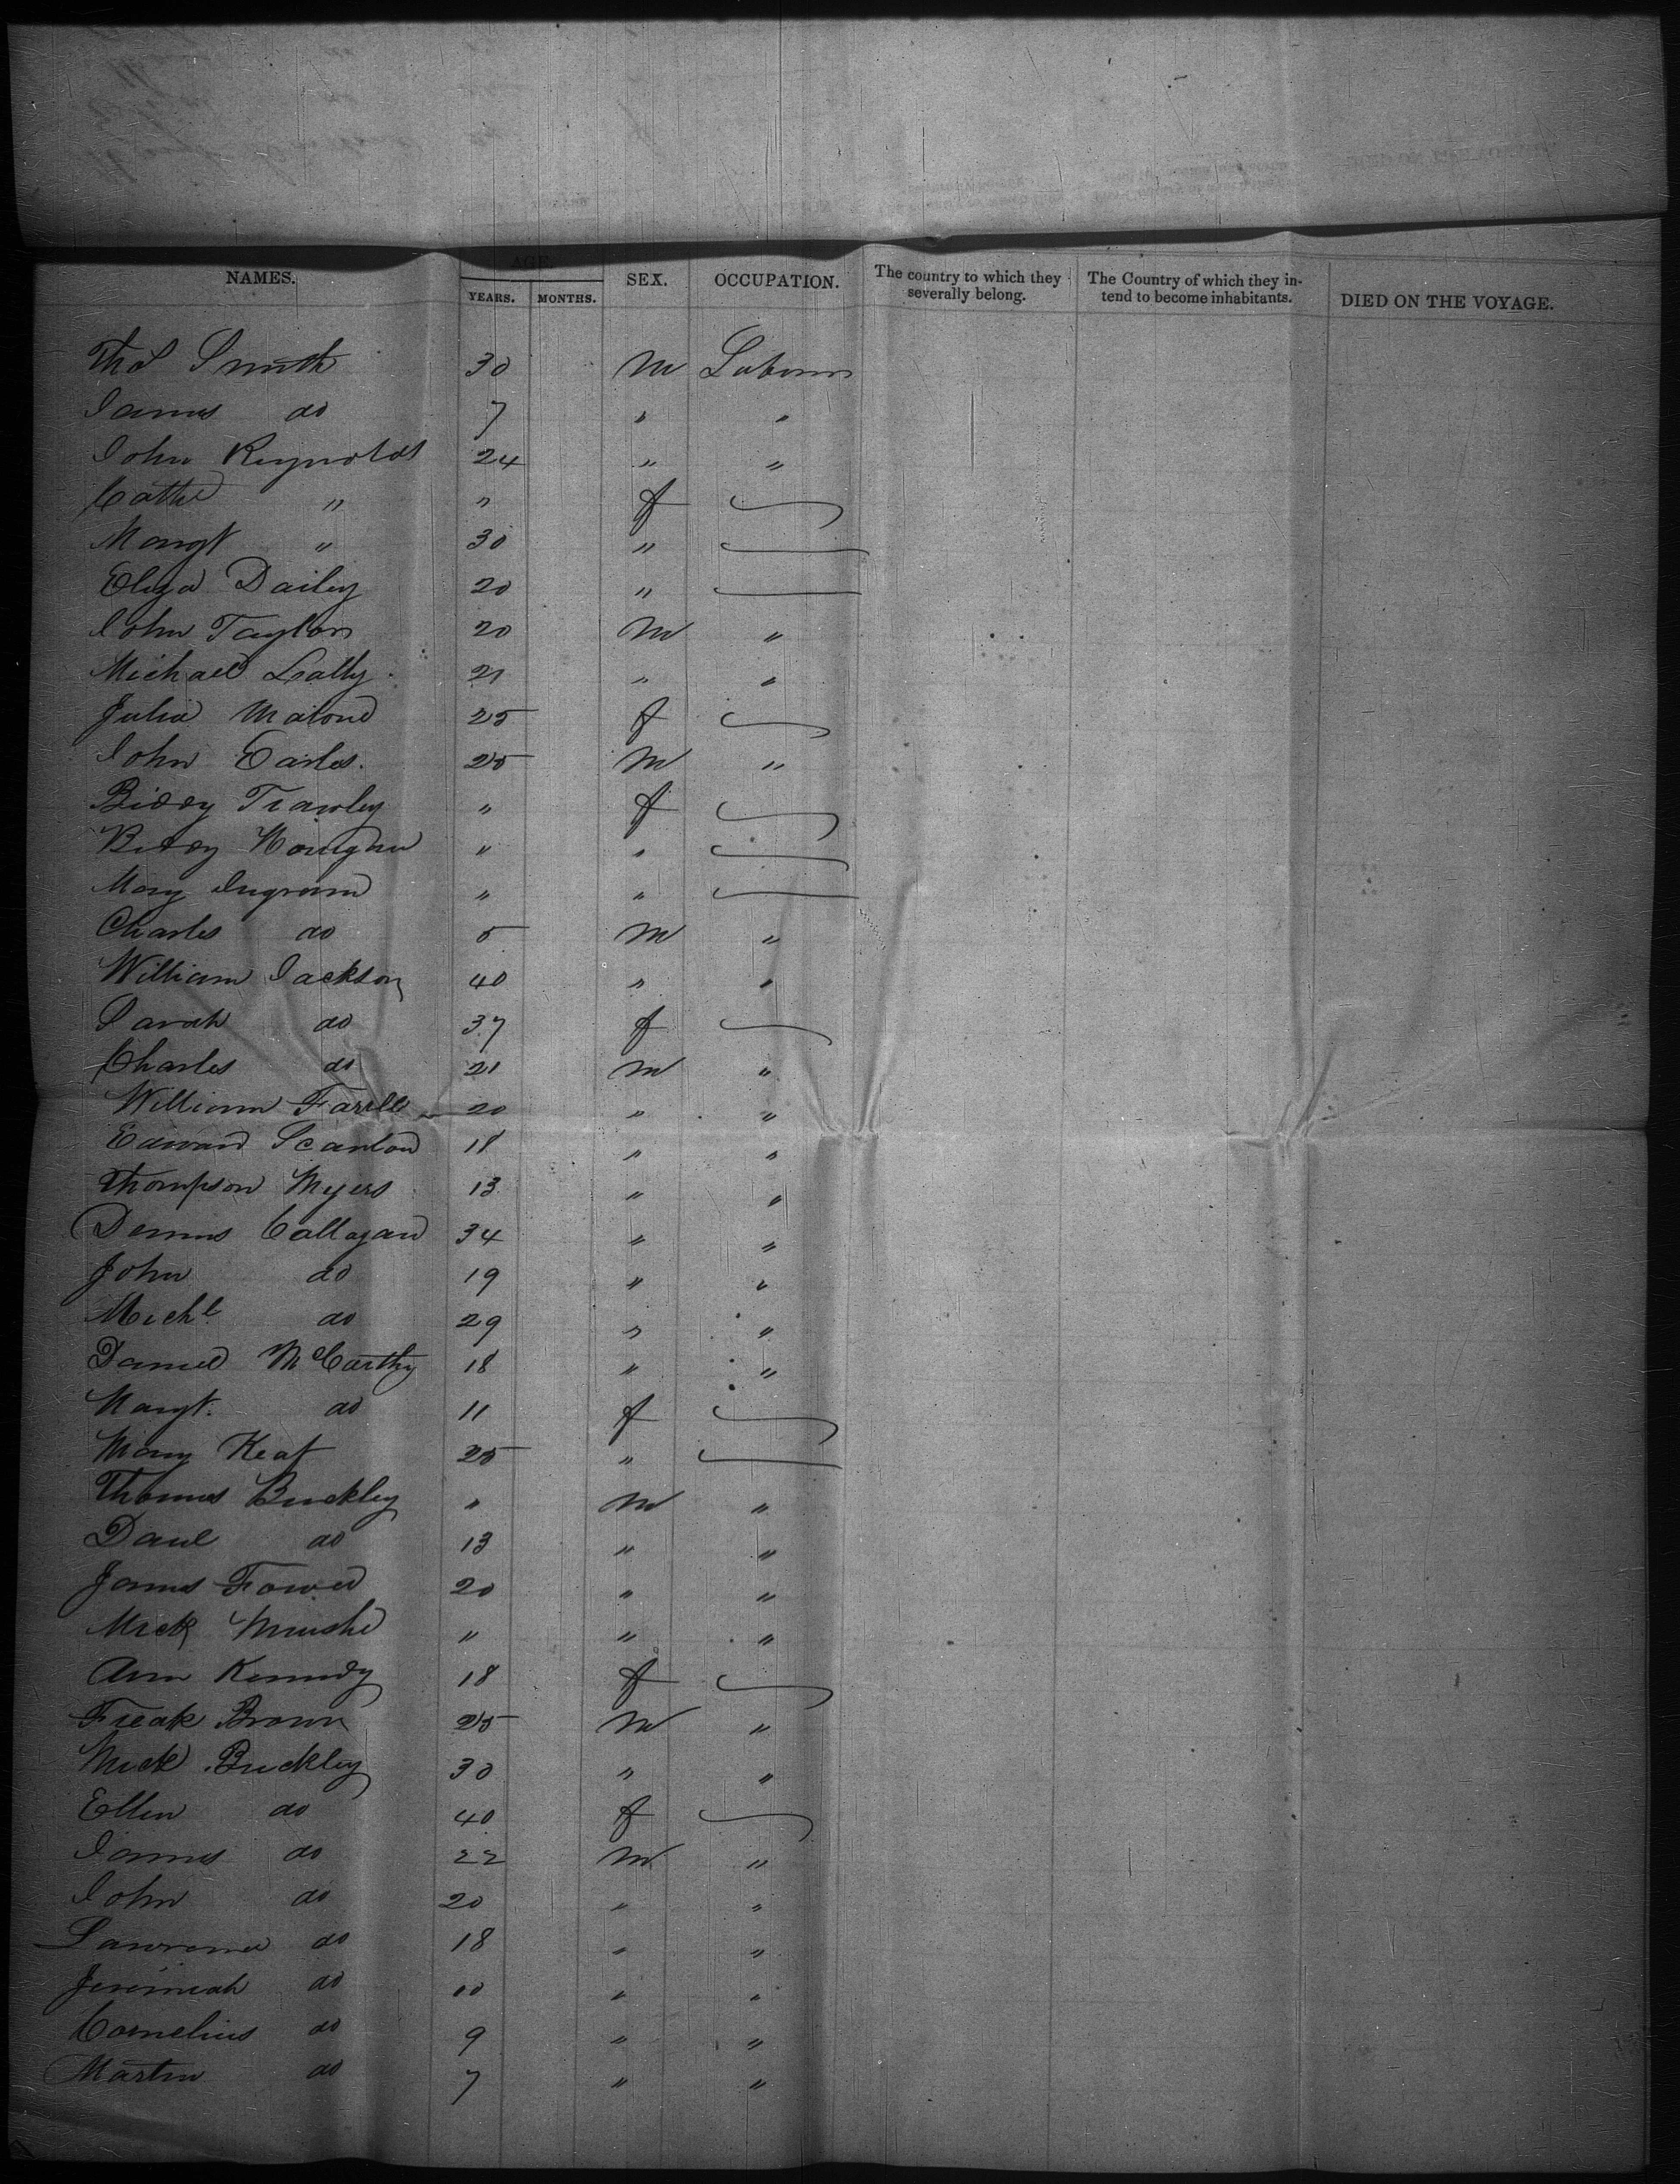 NAMES. AGE. YEARS. MONTHS. SEX. OCCUPATION. The country to which they severally belong. The Country of which they intend to become inhabitants. DIED ON THE VOYAGE.
Thos Smith 30 M Laborer
James do 7 " "
John Reynolds 24 " "
Cathe " " f
Margt " 30 "
Eliza Dailey 20 "
John Taylor 20 M "
Michael Lally 21 " "
Julia Malone 25 f
John Earles. 25 M "
Biddy " f
Biddy " "
Mary Ingram " "
Charles do 5 M "
William Jackson 40 " "
Sarah do 37 f
Charles do 21 M "
William Farell 20 " "
Edward Scanlon 18 " "
Thompson Myers 13 " "
Dennis Callagan 34 " "
John do 19 " "
Michl do 29 " "
Daniel McCarthy 18 " "
Margt. do 11 f
Mary Keaf 25 "
Thomas Buckley " M "
Danl do 13 " "
James 20 " "
Mick " " "
Ann Kennedy 18 f
Brown 25 M "
Mick Buckley 30 " "
Ellen do 40 f
James do 22 M "
John do 20 " "
Lawrence do 18 " "
Jeremiah do 10 " "
Cornelius do 9 " "
Martin do 7 " "